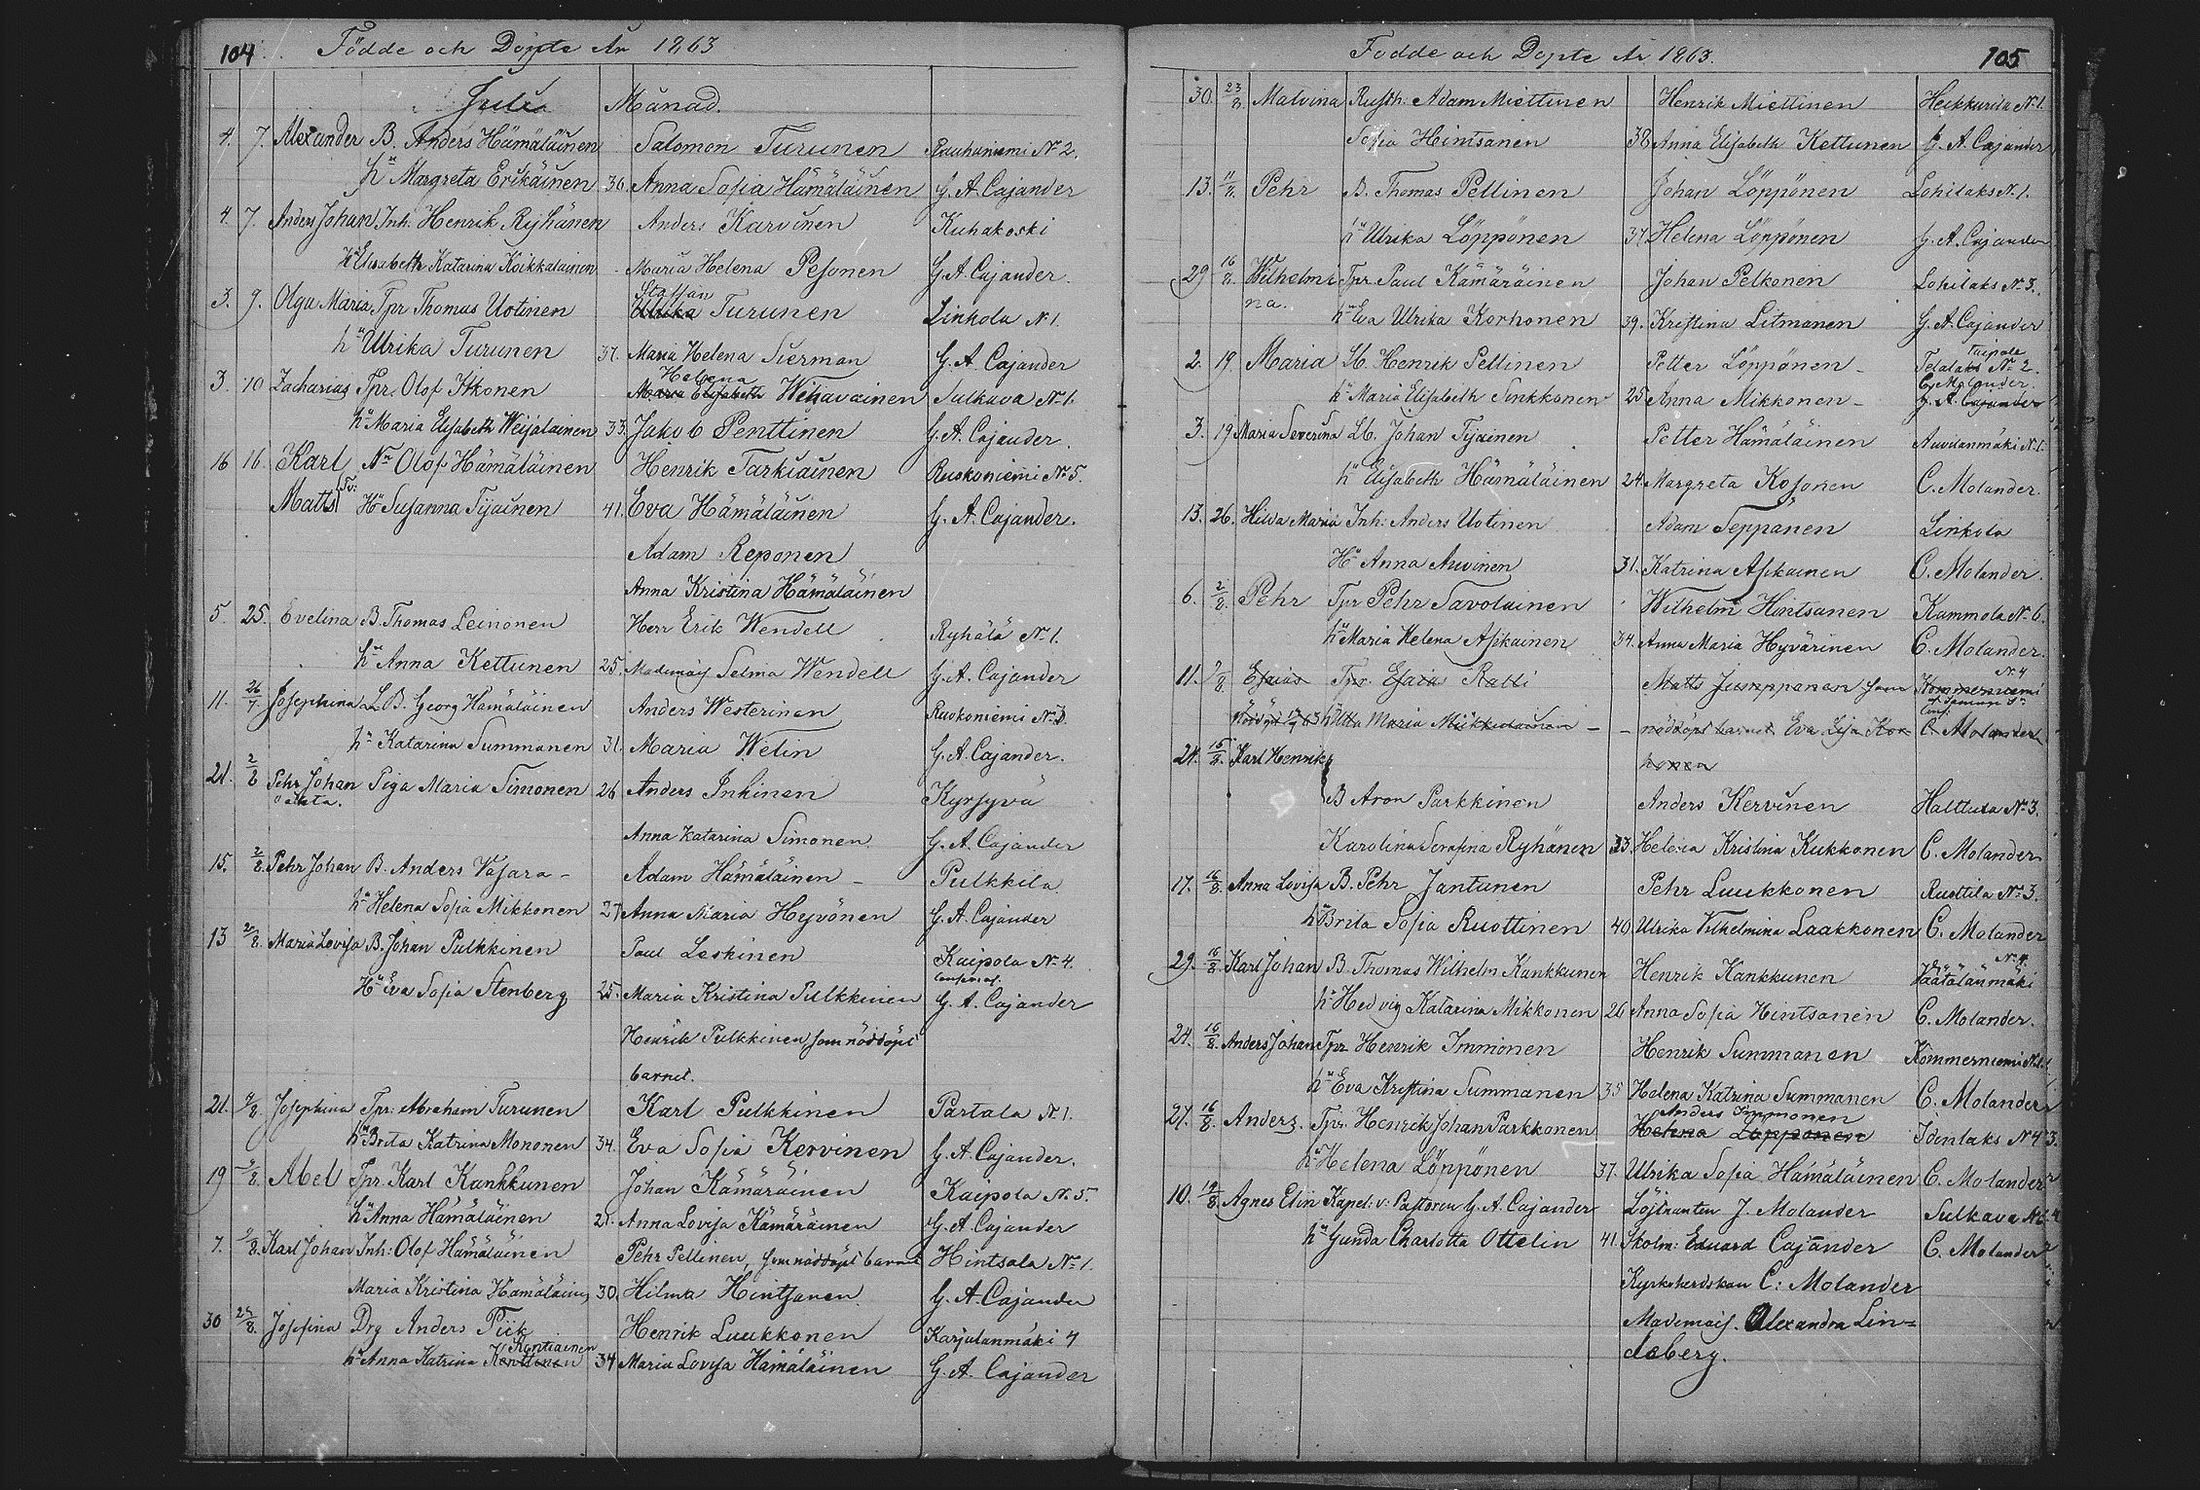 104. Födde och Döpte År 1863
Julii Månad.
4. 7. Alexander B. Anders Hämäläinen Salomon Turunen Rauhaniemi No 2.
hu Margreta Erikäinen 36. Anna Sofia Hämäläinen G. A. Cajander
4. 7. Anders Johan Inh. Henrik Ryhänen Anders Karvinen Kuhakoski
hu Elisabeth Katarina Koikkalainen Maria Helena Pesonen G. A. Cajander.
Staffan
3. 9. Olga Maria Tpr Thomas Uotinen Ulrika Turunen Linkola No 1.
hu Ulrika Turunen 37. Maria Helena Sierman G. A. Cajander
Helena
3. 10 Zacharias Tpr. Olof Itkonen Maria Elisabeth Wehavainen Sulkava No 1.
hu Maria Elisabeth Weijalainen 33. Jakob Penttinen G. A. Cajander.
16 16. Karl Nu Olof Hämäläinen Henrik Tarkiainen Ruokoniemi No 5.
Matts Tv: Hu Susanna Tijainen 41. Eva Hämäläinen G. A. Cajander.
Adam Reponen
Anna Kristina Hämäläinen
5. 25. Evelina B. Thomas Leinonen Herr Erik Wendell Ryhälä No 1.
hu Anna Kettunen 25. Mademois Selma Wendell G. A. Cajander
11. 26/7 Josephina L.B. Georg Hämäläinen Anders Westerinen Ruokoniemi No
hu Katarina Summanen 31. Maria Welin G. A. Cajander.
21. 2/8 Pehr Johan Piga Maria Simonen 26 Anders Inkinen Kyrsyvä
oäkta. Anna Katarina Simonen G. A. Cajander
15. 2/8. Pehr Johan B. Anders Vasara - Adam Hämäläinen - Pulkkila
hu Helena Sofia Mikkonen 27 Anna Maria Hyvönen G. A. Cajander
13 2/8. Maria Lovisa B. Johan Pulkkinen Paul Leskinen Kaipola No 4.
Hu Eva Sofia Stenberg 25. Maria Kristina Pulkkinen G. A. Cajander
Henrik Pulkkinen som nöddöpt
barnet.
21. 9/8. Josephina Tpr: Abraham Turunen Karl Pulkkinen Partala No 1.
hu Brita Katrina Mononen 34. Eva Sofia Kervinen G. A. Cajander.
19 9/8. Abel Tpr. Karl Kankkunen Johan Kämäräinen Kaipola No 5.
hu Anna Hämäläinen 21. Anna Lovisa Kämäräinen G. A. Cajander
7. 9/8. Karl Johan Inh: Olof Hämäläinen Pehr Pellinen, som nöddöpt barnet Hintsala No 1.
Maria Kristina Hämäläinen 30. Hilma Hintsanen G. A. Cajander
30 23/8. Josefina Drg Anders Piik Henrik Luukkonen Karjulanmäki 4
Kontiainen
hu Anna Katrina Konttinen 34 Maria Lovisa Hämäläinen G. A. Cajander
Födde och Döpte År 1863. 105
30. 23/8. Malvina Rusth. Adam Miettinen Henrik Miettinen Heikkurila No 1.
Sofia Hintsanen 38 Anna Elisabeth Kettunen G. A. Cajander
13. Pehr B. Thomas Pellinen Johan Löppönen Lohilaks No 1.
hu Ulrika Löppönen 37 Helena Löppönen G. A. Cajander
29 16/8. Wilhelmi Tpr. Paul Kämäräinen Johan Pelkonen Lohilaks No 3.
na. hu Eva Ulrika Korhonen 39. Kristina Litmanen G. A. Cajander
Kaipola
2. 19. Maria Henrik Pellinen Petter Löppönen - Telalaks No 2.
C. Molander.
hu Maria Elisabeth Sinkkonen 25 Anna Mikkonen - G. A. Cajander
3. 19 Maria Severina Lb. Johan Tijainen Petter Hämäläinen Auvilanmäki No 1.
hu Elisabeth Hämäläinen 24. Margreta Kosonen C. Molander.
13. 26. Hilda Maria Inh: Anders Uotinen Adam Seppänen Linkola
Hu Anna Auvinen 31. Katrina Asikainen C. Molander.
6. 2/8. Pehr Tpr Pehr Savolainen Wilhelm Hintsanen Kammola No 6.
hu Maria Helena Asikainen 34. Anna Maria Hyvärinen C. Molander.
No 4
11. 9/8 Esaias Tpr Esaia Ralli Matts Jumppanen som Kommerniemi
hu Ulla Maria Miikkulainen - - nöddöpt barnet Eva Lisa Kor- C. Molander
24. 15/8. Karl Henrik honen
B Aron Parkkinen Anders Kervinen Halttula No 3.
Karolina Serafina Ryhänen 33. Helena Kristina Kukkonen C. Molander
17. 16/8. Anna Lovisa B. Pehr Jantunen Pehr Luukkonen Ruottila No 3.
hu Brita Sofia Ruottinen 40 Ulrika Vilhelmina Laakkonen C. Molander
No 4.
29. 16/8. Karl Johan B. Thomas Wilhelm Kankkunen Henrik Kankkunen Väätälänmäki
hu Hedvig Katarina Mikkonen 26 Anna Sofia Hintsanen C. Molander.
24. 16/8. Anders Johan Tpr. Henrik Immonen Henrik Summanen Kommerniemi
hu Eva Kristina Summanen 35 Helena Katrina Summanen C. Molander
Anders Immonen
27. 16/8. Anders. Tpr. Henrik Johan Parkkonen Helena Löppönen Idenlaks No 4
hu Helena Löppönen 37. Ulrika Sofia Hämäläinen C. Molander
10. 19/8. Agnes Elin Kapel: v. Pastoren G. A. Cajander Löjtnanten J. Molander Sulkava
hu Gunda Charlotta Ottelin 41. Skolm: Eduard Cajander C. Molander
Kyrkoherdskan C: Molander
Mademois. Alexandra Lin-
deberg.